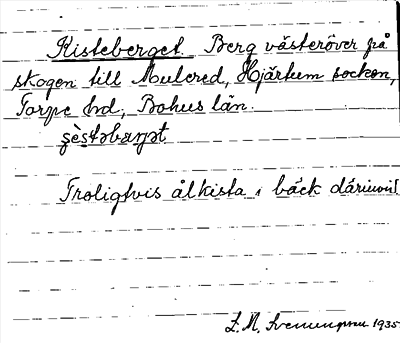 Kisteberget. Berg västeröver på
skogen till Mulered, Hjärtum socken,
Torpe hd, Bohus län.
Troligtvis ålkista i bäck därinvid
L. M. Svenungsson 1935